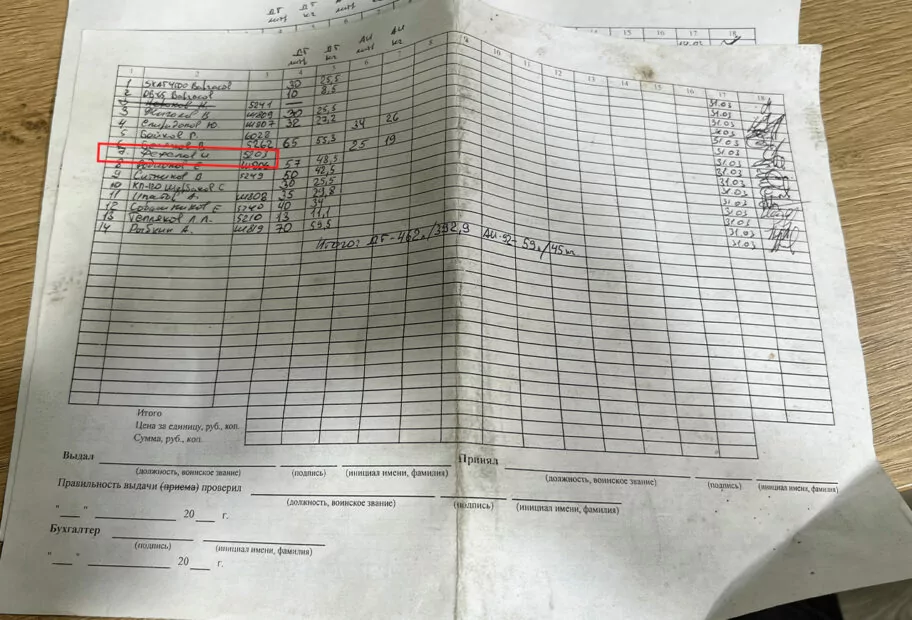 ДТ ДТ АИ АИ
литр кг литр кг
1 2 3 4 5 6 7 8 9 10 11 12 13 14 15 16 17 18
1 30 25,5 31.03
2 10 8,5
5241 —
3 Ш809 30 25,5 31.03
4 Спиридонов Ю. Ш807 32 27,2 31.03
5 Бойков Г. 6028 34 26 31.03
6 5262 65 55,3 31.03
7 5203 25 19 31.03
8 Родионов Е 57 48,5 31.03
9 Ситников В 5249 50 42,5 31.03
10 КП-130 Щербаков С 30 25,5 31.03
11 Ш808 35 29,8 31.03
12 Собашников Е 5240 40 34 31.03
13 Тепляков Л.Л. 5210 13 11,1 31.03
14 Рыбкин А. Ш819 70 59,5 31.03
Итого: ДТ-462л/392,9 АИ-92-59л/45кг
Итого
Цена за единицу, руб., коп.
Сумма, руб., коп.
Выдал Принял
(должность, воинское звание) (подпись) (инициал имени, фамилия) (должность, воинское звание) (подпись) (инициал имени, фамилия)
Правильность выдачи (приема) проверил
(должность, воинское звание) (подпись) (инициал имени, фамилия)
"___" 20___ г.
Бухгалтер
(подпись) (инициал имени, фамилия)
"___" 20___ г.